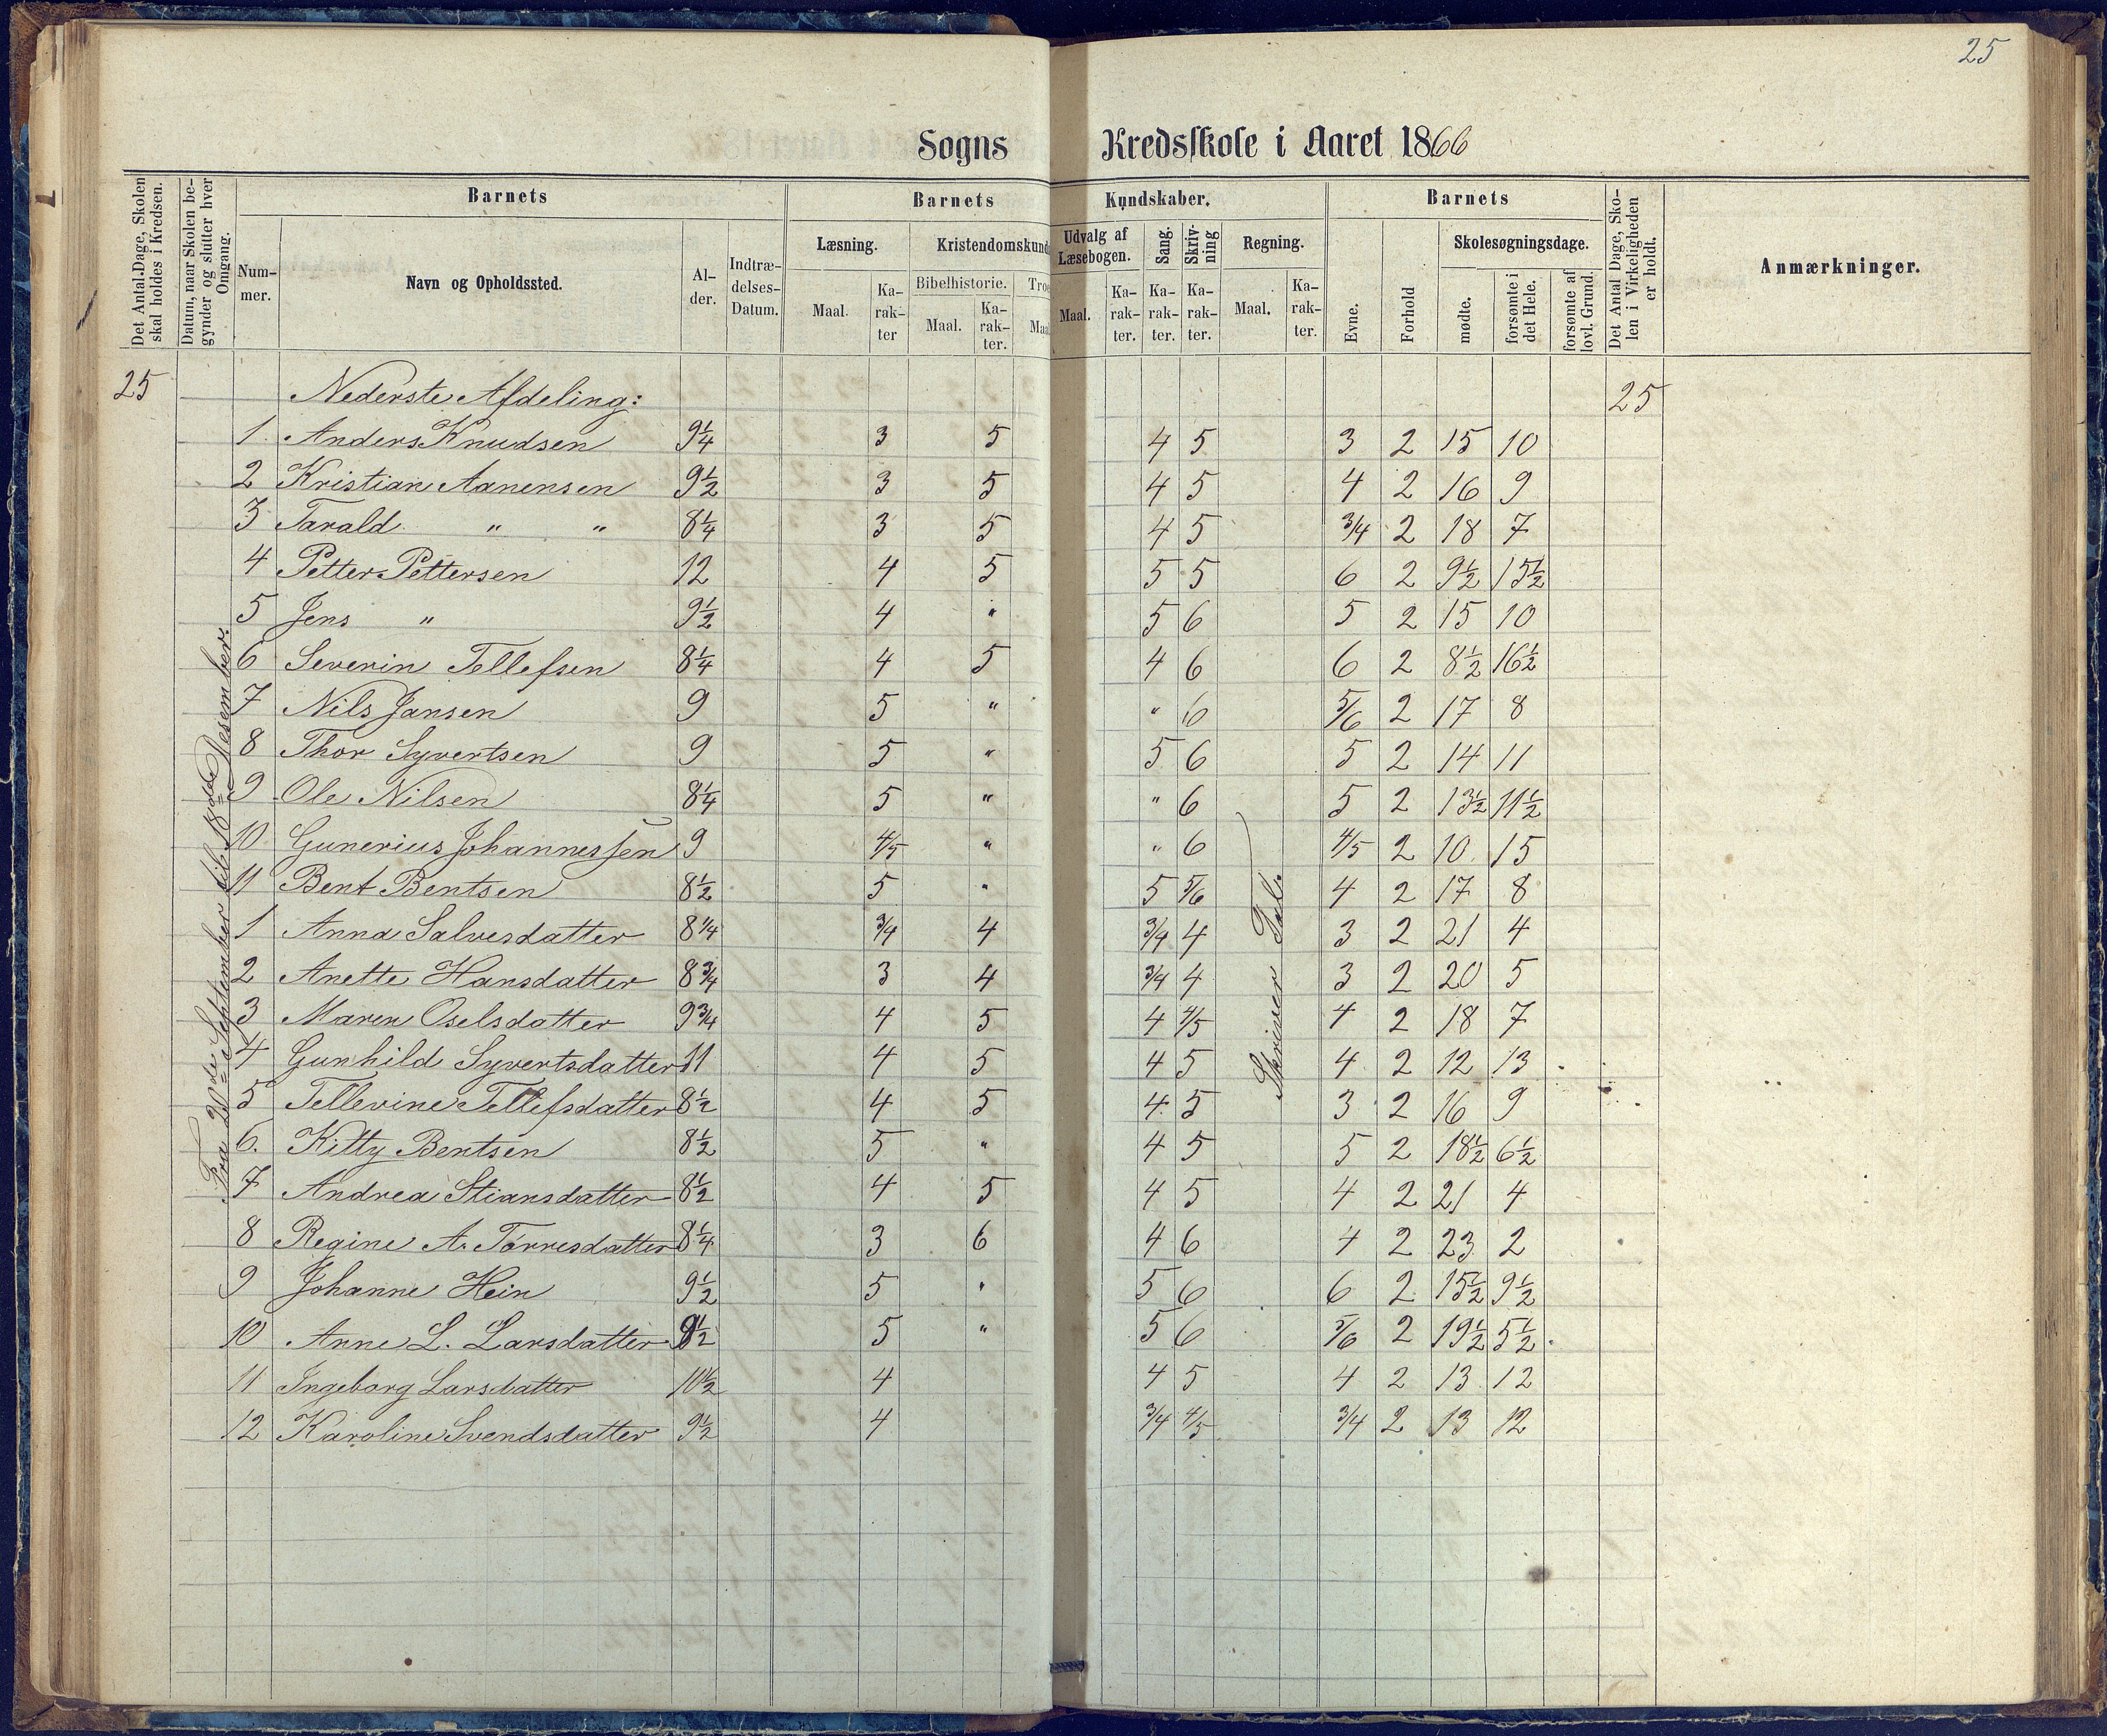 25
Sogns Kredsskole i Aaret 1866
Det Antal Dage, Skolen skal holdes i Kredsen.
Datum, naar Skolen begynder og slutter hver Omgang.
Barnets
Num-mer.
Navn og Opholdssted.
Al-der.
Indtræ-delses-Datum.
Barnets Kundskaber.
Læsning.
Maal.
Ka-rak-ter
Kristendomskund
Bibelhistorie.
Maal.
Ka-rak-ter.
Troe
Maa
Udvalg af Læsebogen.
Maal.
Ka-rak-ter.
Sang.
Ka-rak-ter.
Skriv-ning
Ka-rak-ter.
Regning.
Maal.
Ka-rak-ter.
Barnets
Evne.
Forhold
Skolesøgningsdage.
mødte.
forsømte i det Hele.
forsømte af lovl. Grund.
Det Antal Dage, Sko-len i Virkeligheden er holdt.
Anmærkninger.
25 Nederste Afdeling: 25
Fra 20de September til 18de Desember.
Skriver Tal.
1 Anders Knudsen 9 1/4 3 5 4 5 3 2 15 10
2 Kristian Aanensen 9 1/2 3 5 4 5 4 2 16 9
3 Tarald " " 8 1/4 3 5 4 5 3/4 2 18 7
4 Petter Pettersen 12 4 5 5 5 6 2 9 1/2 15 1/2
5 Jens " 9 1/2 4 " 5 6 5 2 15 10
6 Severin Tellefsen 8 1/4 4 5 4 6 6 2 8 1/2 16 1/2
7 Nils Jansen 9 5 " " 6 5/6 2 17 8
8 Thor Syvertsen 9 5 " 5 6 5 2 14 11
9 Ole Nilsen 8 1/4 5 " " 6 5 2 13 1/2 11 1/2
10 Gunerius Johannessen 9 4/5 " " 6 4/5 2 10 15
11 Bent Bentsen 8 1/2 5 " 5 5/6 4 2 17 8
1 Anna Salvesdatter 8 1/4 3/4 4 3/4 4 3 2 21 4
2 Anette Hansdatter 8 3/4 3 4 3/4 4 3 2 20 5
3 Maren Oselsdatter 9 3/4 4 5 4 4/5 4 2 18 7
4 Gunhild Syvertsdatter 11 4 5 4 5 4 2 12 13
5 Tellevine Tellefsdatter 8 1/2 4 5 4 5 3 2 16 9
6. Kitty Bentsen 8 1/2 5 " 4 5 5 2 18 1/2 6 1/2
7 Andrea Stiansdatter 8 1/2 4 5 4 5 4 2 21 4
8 Regine A. Tørresdatter 8 1/4 3 6 4 6 4 2 23 2
9 Johanne Hein 9 1/2 5 " 5 6 6 2 15 1/2 9 1/2
10 Anne L. Larsdatter 8 1/2 5 " 5 6 5/6 2 19 1/2 5 1/2
11 Ingeborg Larsdatter 10 1/2 4 4 5 4 2 13 12
12 Karoline Svendsdatter 9 1/2 4 3/4 4/5 3/4 2 13 12